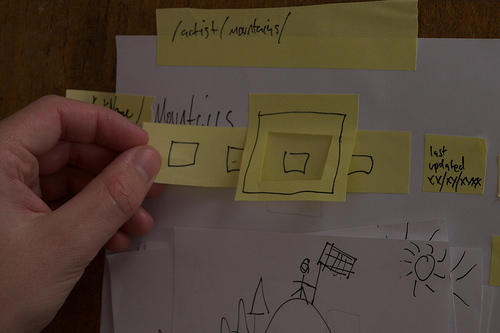 /artist/mountains/
Mountains
last
updated
xx/xx/xxxx